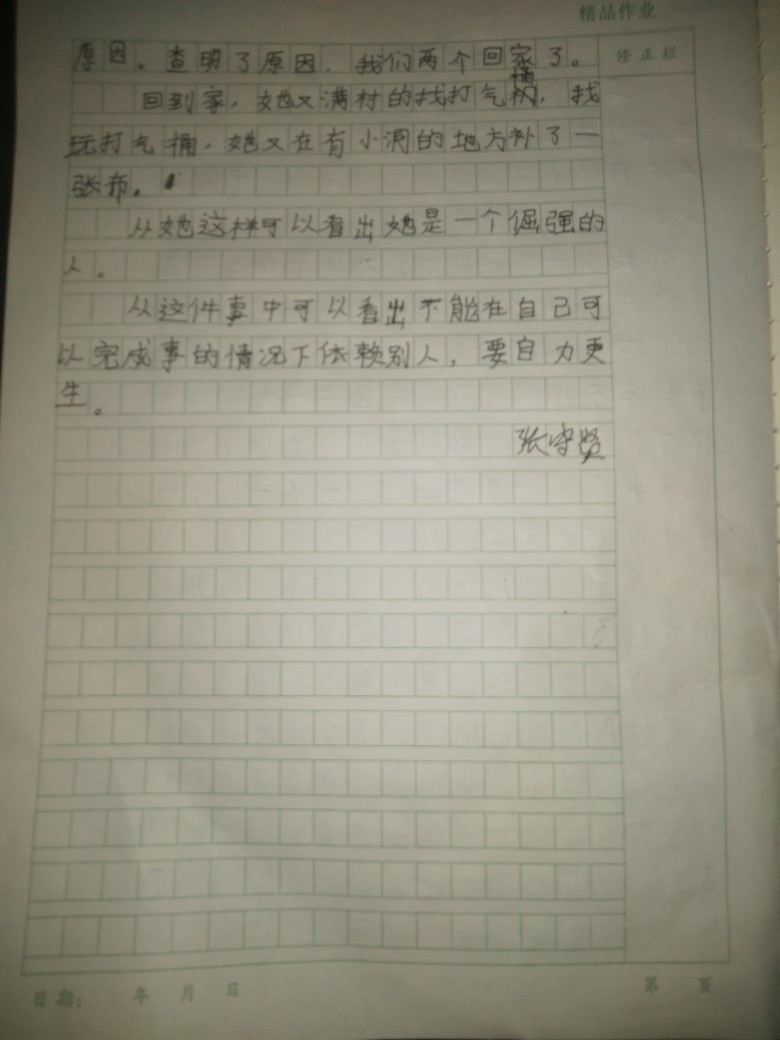 精品作业
修正栏
原因。查明了原因，我们两个回家了。
回到家，她又满村的找打气桶，找
玩打气桶，她又在有小洞的地方补了一
张布。
从她这样可以看出她是一个倔强的
人。
从这件事中可以看出不能在自己可
以完成事的情况下依赖别人，要自力更
生。
张守贤
日期： 年 月 日
第 页